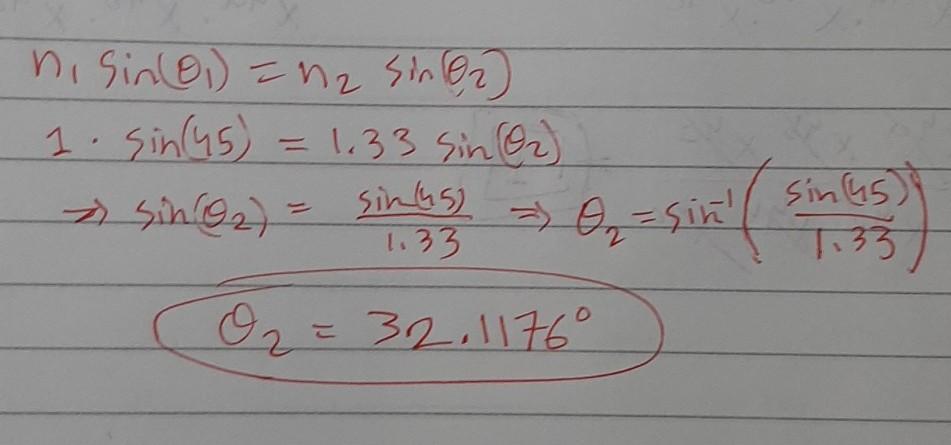 n₁ sin(θ₁) = n₂ sin(θ₂)
1 · sin(45) = 1.33 sin(θ₂)
⇒ sin(θ₂) = sin(45)/1.33 ⇒ θ₂ = sin⁻¹(sin(45)/1.33)
θ₂ = 32.1176°